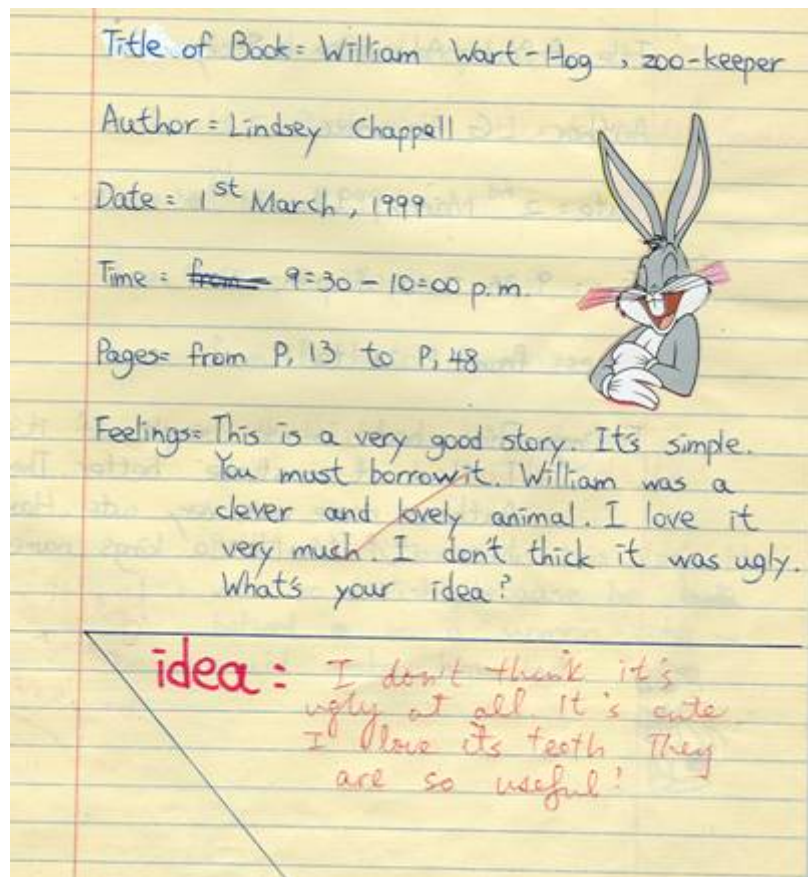 Title of Book= William Wart-Hog, zoo-keeper
Author = Lindsey Chappell
Date = 1st March, 1999
Time = from 9=30 - 10=00 p.m.
Pages= from P. 13 to P. 48
Feelings= This is a very good story. It's simple.
You must borrow it. William was a
clever and lovely animal. I love it
very much. I don't thick it was ugly.
What's your idea?
idea = I don't think it's
ugly at all. It's cute
I love its teeth They
are so useful!